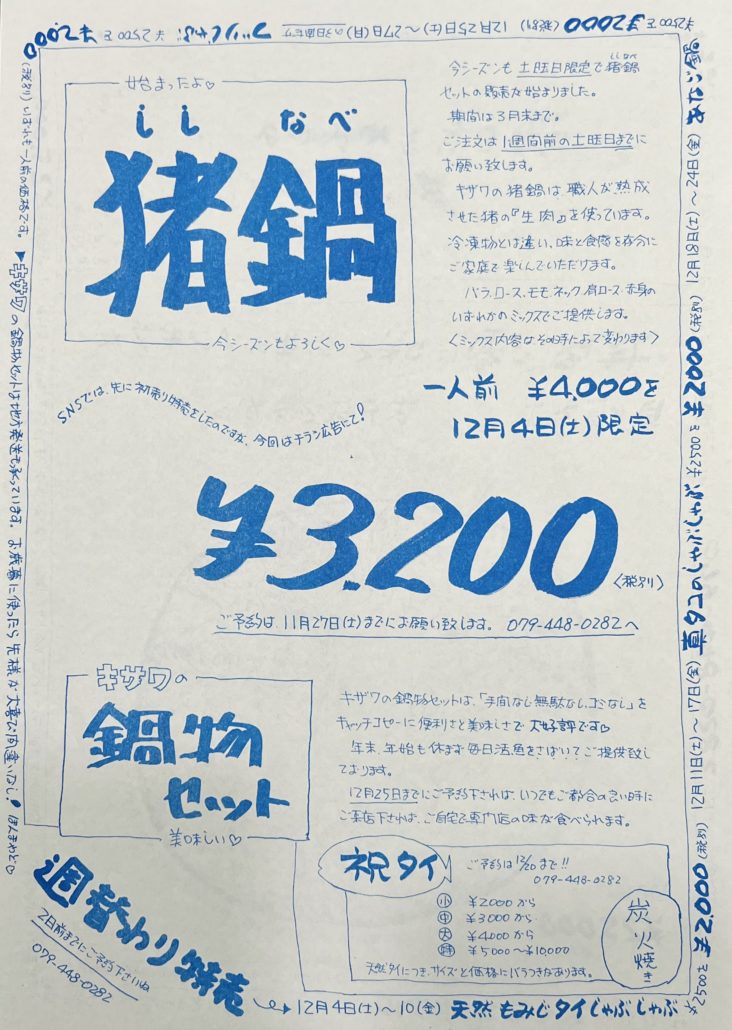 始まったよ♡
しし なべ
猪鍋
今シーズンもよろしく♡
今シーズンも土曜日限定で猪鍋
ししなべ
セットの販売が始まりました。
期間は3月末まで。
ご注文は1週間前の土曜日までに
お願い致します。
キザワの猪鍋は、職人が熟成
させた猪の『生肉』を使っています。
冷凍物とは違い、味と食感を存分に
ご家庭で楽しんでいただけます。
バラ、ロース、モモ、ネック、肩ロース、赤身の
いずれかのミックスでご提供します。
〈ミックス内容は、その時によって変わります〉
SNSでは、先に初売り特売をしたのですが、今回はチラシ広告にて!
一人前 ¥4,000を
12月4日(土)限定
¥3,200
〈税別〉
ご予約は、11月27日(土)までにお願い致します。 079-448-0282へ
キザワの
鍋物
セット
美味しい♡
キザワの鍋物セットは、「手間なし無駄なしゴミなし」を
キャッチコピーに便利さと美味しさで大好評です♡
年末、年始も休まず毎日活魚をさばいてご提供致し
ております。
12月25日までにご予約下されば、いつでもご都合の良い時に
ご来店下されば、ご自宅で専門店の味が食べられます。
祝タイ
ご予約は12/20まで!!
079-448-0282
小 ¥2000から
中 ¥3000から
大 ¥4000から
特 ¥5000〜¥10,000
天然タイにつき、サイズと価格にバラつきがあります。
炭火焼き
週替わり特売
2日前までにご予約下さいね
079-448-0282
12月4日(土)〜10(金) 天然もみじタイしゃぶしゃぶ
¥2500を ¥2,000(税別)
12月11日(土)〜17日(金) 真ダコのしゃぶしゃぶ ¥2500を ¥2000(税別)
12月18日(土)〜24日(金)
¥2500を ¥2000(税別)
12月25日(土)〜27日(月)
¥2500を ¥2,000
(税別) いずれも一人前の価格です。
▶キザワの鍋物セットは地方発送も承っています。お歳暮に使ったら先様が大喜び間違いなし! ほんまやど♡